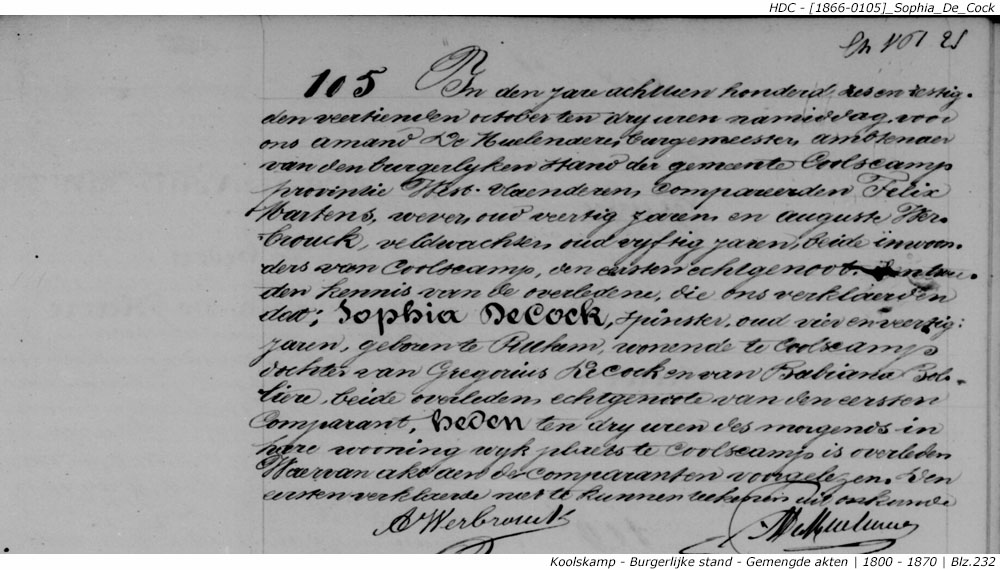 HDC - [1866-0105]_Sophia_De_Cock
105 In den jare achttien honderd zes en zestig.
den veertienden october ten dry uren namiddag, voor
ons amand De Meulenaere, burgemeester, ambtenaer
van den burgerlyken stand der gemeente Coolscamp
provintie West-Vlaenderen, compareerden Felix
Martens, wever, oud veertig jaren, en auguste Wer-
brouck, veldwachter, oud vyftig jaren, beide inwoon-
ders van Coolscamp, den eersten echtgenoot
den kennis van de overledene, die ons verklaerden
dat; Sophia DeCock, spinster, oud vier en veertig:
jaren, geboren te Pitthem, wonende te Coolscamp
dochter van Gregorius De Cock en van Babiana Bob-
liere, beide overleden, echtgenote van den eersten
Comparant, heden ten dry uren des morgends in
hare wooning wyk plaets te Coolscamp is overleden
Waervan akt aen de comparanten voorgelezen. Den
eersten verklaerde niet te kunnen teekenen uit onkunde
AWerbrouck
Koolskamp - Burgerlijke stand - Gemengde akten | 1800 - 1870 | Blz.232